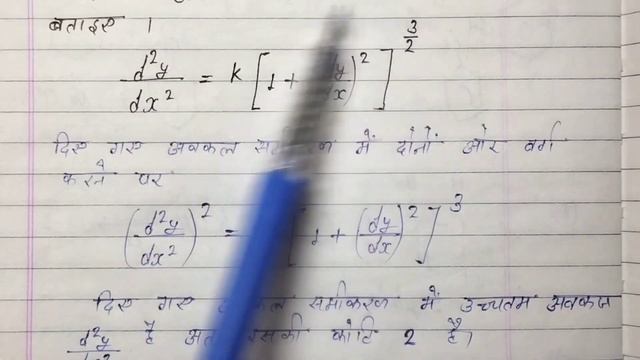 बताइए ।
d²y/dx² = K [1 + (dy/dx)²]^3/2
दिए गए अवकल में दोनों ओर वर्ग
करने पर
(d²y/dx²)² = [1 + (dy/dx)²]³
दिए गए समीकरण में उच्चतम अवकलज
d²y/dx² है इसकी कोटि 2 है।